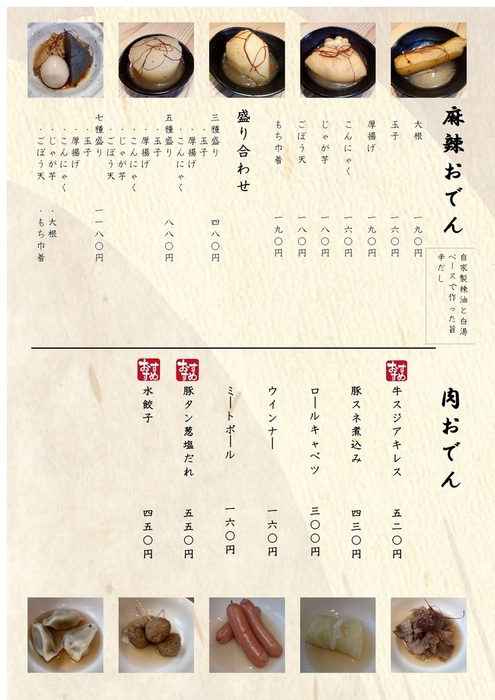 麻辣おでん
自家製辣油と白湯
ベースで作った旨
辛だし
大根 一九〇円
玉子 一六〇円
厚揚げ 一九〇円
こんにゃく 一六〇円
じゃが芋 一八〇円
ごぼう天 一八〇円
もち巾着 一九〇円
盛り合わせ
三種盛り 四八〇円
・玉子
・厚揚げ
・こんにゃく
五種盛り 八八〇円
・玉子
・厚揚げ
・こんにゃく
・じゃが芋
・ごぼう天
七種盛り 一一八〇円
・玉子
・厚揚げ
・こんにゃく
・じゃが芋 ・大根
・ごぼう天 ・もち巾着
肉おでん
おすすめ
牛スジアキレス 五二〇円
豚スネ煮込み 四三〇円
ロールキャベツ 三〇〇円
ウインナー 一六〇円
ミートボール 一六〇円
おすすめ
豚タン葱塩だれ 五五〇円
おすすめ
水餃子 四五〇円